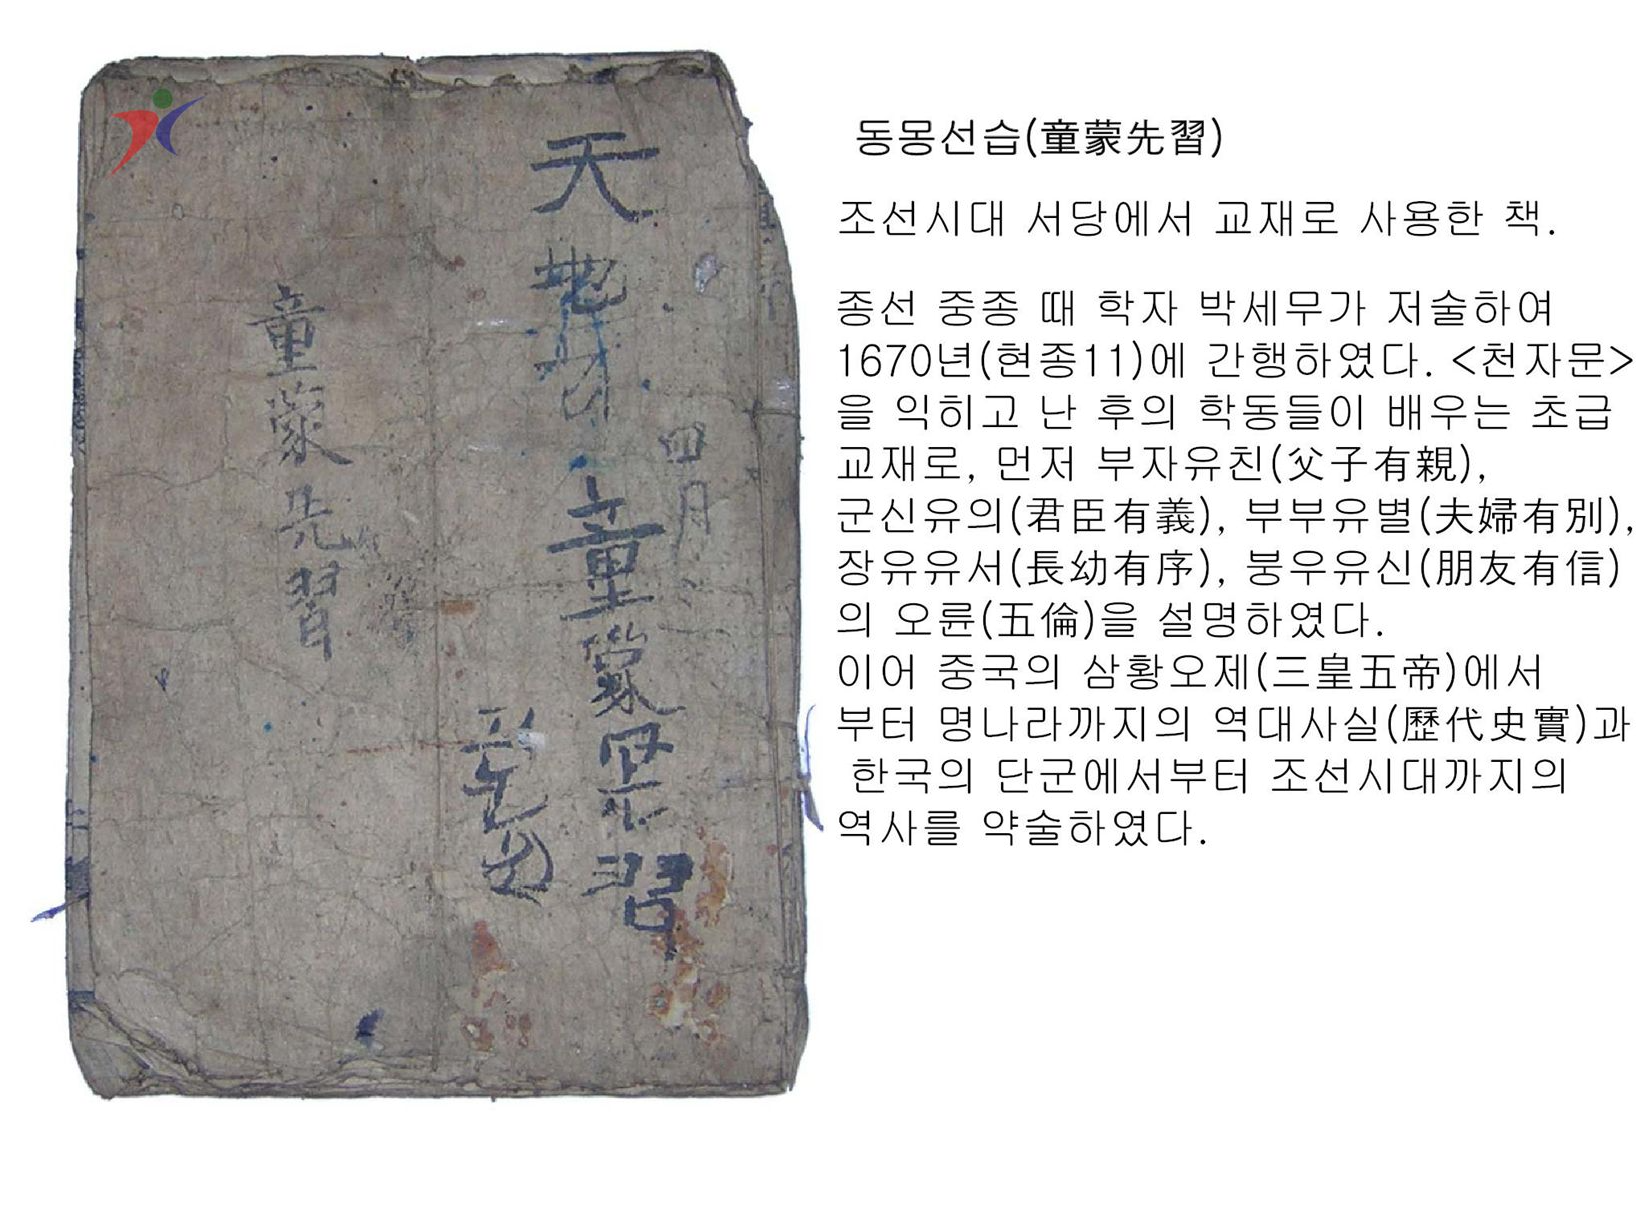 天
地
童蒙
習
四月
童蒙先習
동몽선습(童蒙先習)
조선시대 서당에서 교재로 사용한 책.
종선 중종 때 학자 박세무가 저술하여
1670년(현종11)에 간행하였다. <천자문>
을 익히고 난 후의 학동들이 배우는 초급
교재로, 먼저 부자유친(父子有親),
군신유의(君臣有義), 부부유별(夫婦有別),
장유유서(長幼有序), 붕우유신(朋友有信)
의 오륜(五倫)을 설명하였다.
이어 중국의 삼황오제(三皇五帝)에서
부터 명나라까지의 역대사실(歷代史實)과
한국의 단군에서부터 조선시대까지의
역사를 약술하였다.